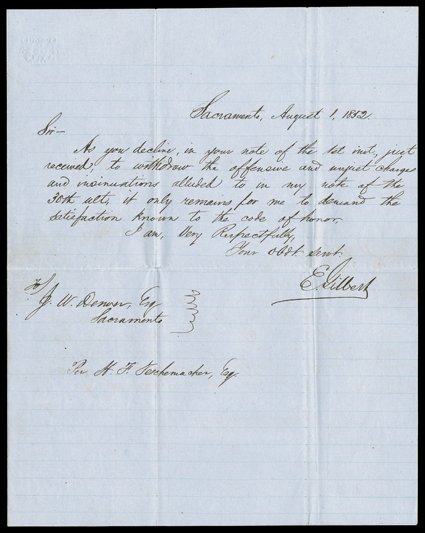 Sacramento, August 1, 1852.
Sir—
As you decline, in your note of the 1st inst, just
received, to withdraw the offensive and unjust charges
and insinuations alluded to in my note of the
30th ult, it only remains for me to demand the
satisfaction known to the code of honor.
I am, Very Respectfully,
Your obdt servt.
E. Gilbert
To
J. W. Denver, Esq
Sacramento
Per H. F. Teschemacher, Esq.